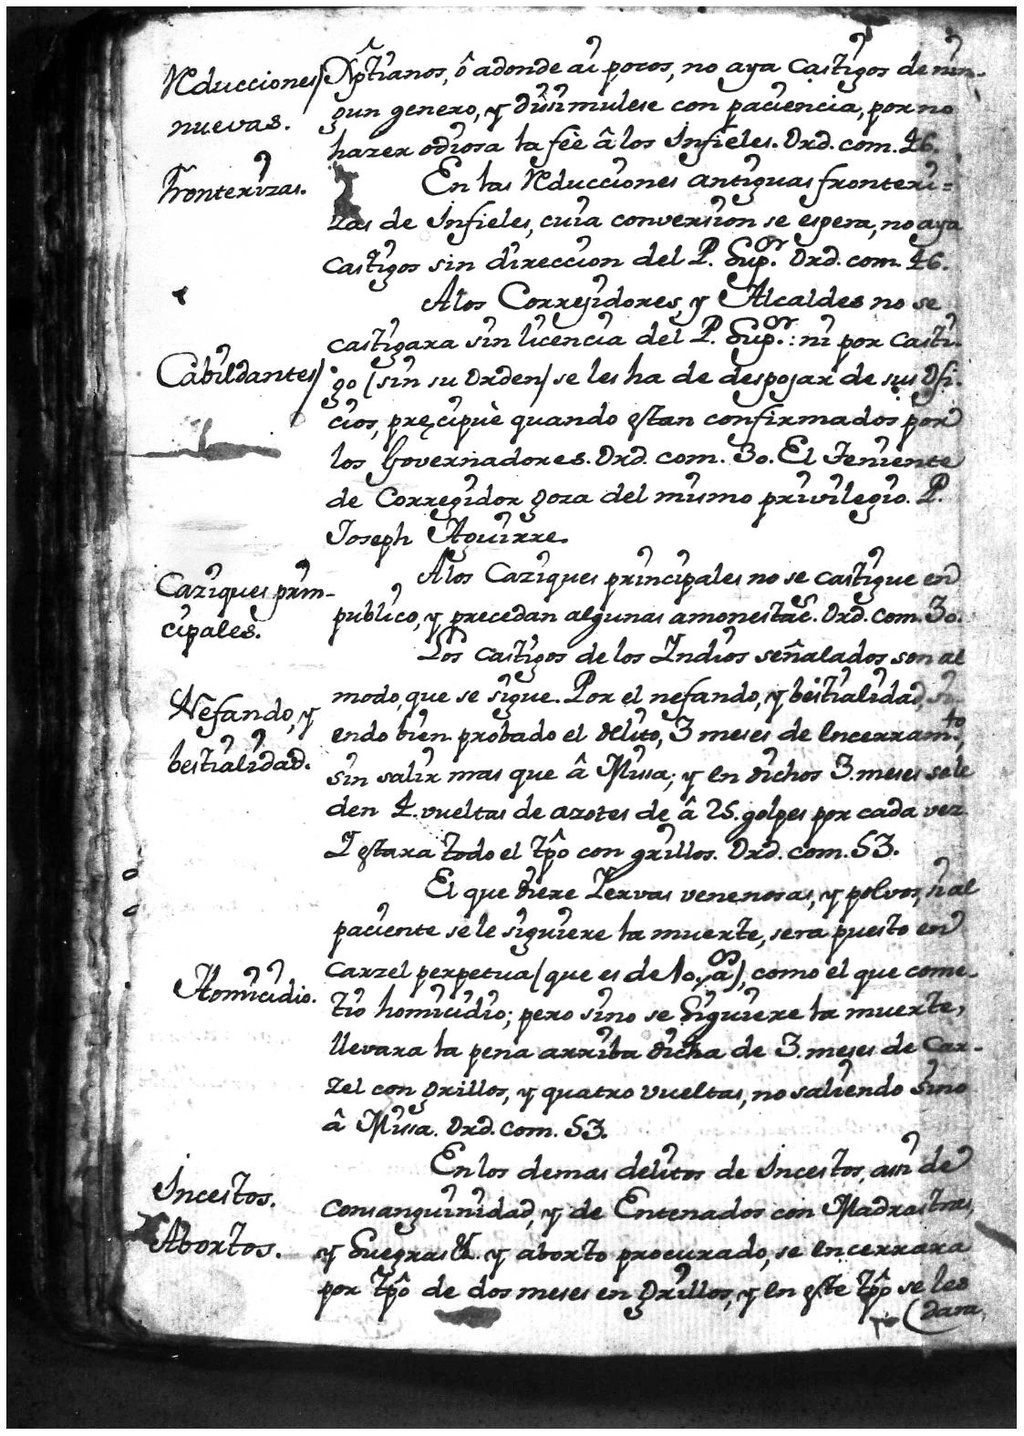 Rducciones
nuevas.
Xptianos, ô adonde ai pocos, no aya castigos de nin-
gun genero, y dissimulese con paciencia, por no
hazer odiosa la feè â los Infieles. Ord. com. 46.
Fronterizas.
En las Rducciones antiguas fronteri=
zas de Infieles, cuia conversion se espera, no aya
castigos sin direccion del P. Supor. Ord. com. 46.
A los Corregidores, y Alcaldes no se
castigara sin licencia del P. Supor.: ni por casti-
Cabildantes
go (sin su Orden) se les ha de despojar de sus Ofi-
cios, pręcipuè quando estan confirmados por
los Governadores. Ord. com. 30. El Teniente
de Corregidor goza del mismo privilegio. P.
Joseph Aguirre.
Caziques prin-
cipales.
A los Caziques principales no se castigue en
publico, y precedan algunas amonestac. Ord. com. 30.
Los castigos de los Indios señalados son al
Nefando, y
bestialidad.
modo, que se sigue. Por el nefando, y bestialidad, si
endo bien probado el delito, 3 meses de encerramto,
sin salir mas que â Missa; y en dichos 3. meses se le
den 4. vueltas de azotes de â 25. golpes por cada vez
I estara todo el tpô con grillos. Ord. com. 53.
El que diere Iervas venenosas, y polvos, si al
paciente se le siguiere la muerte, sera puesto en
Homicidio.
Carzel perpetua (que es de 10. as), como el que come-
tio homicidio; pero sino se siguiere la muerte,
llevara la pena arriba dicha de 3. meses de Car-
zel con grillos, y quatro vueltas, no saliendo sino
â Missa. Ord. com. 53.
Incestos.
Abortos.
En los demas delitos de Incestos, assi de
consanguinidad, y de Entenados con Madrastras,
y Suegras &. y aborto procurado, se encerrara
por tpô de dos meses en grillos, y en este tpô se les
dara,